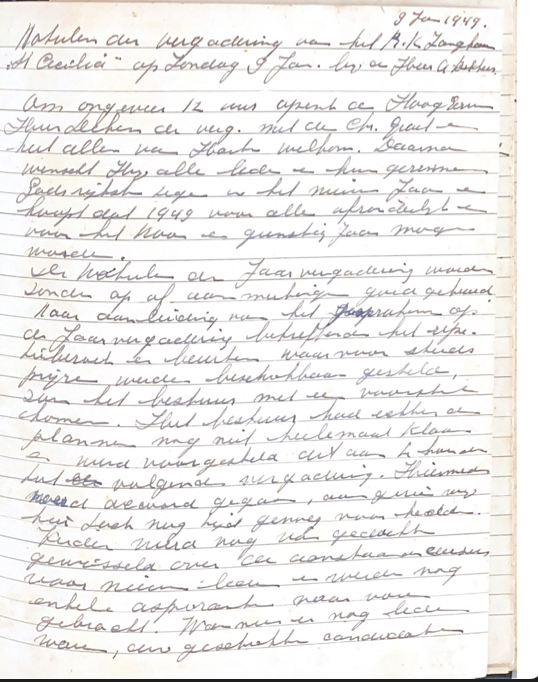 9 Jan 1949.
Notulen der vergadering van het R.K. Zangkoor
"St Cecilia" op Zondag 9 Jan. bij de Heer A.
Om ongeveer 12 uur opent de Hoog Eerw
Heer Deken de verg. met de Chr. Groet en
heet allen van Harte welkom. Daarna
wenscht Hij alle leden en hun gezinnen
Gods rijkste zegen in het nieuwe Jaar en
hoopt dat 1949 voor alle afzonderlijk en
voor het Koor een gunstig Jaar moge
worden.
De Notulen der Jaarvergadering werden
zonder op of aanmerkingen goed gekeurd
Naar aanleiding van het gesprokene op
de Jaarvergadering betreffende het
bezoek en waarvoor steeds
prijzen werden beschikbaar gesteld,
zou het bestuur met een voorstel
komen. Het bestuur had echter de
plannen nog niet heelemaal klaar
en werd voorgesteld dit aan te houden
tot de volgende vergadering. Hiermee
werd accoord gegaan, aangezien wij
hier toch nog tijd genoeg voor hebben.
Verder werd nog van gedachten
gewisseld over de aanstaande cursus
voor nieuwe leden en werden nog
enkele aspiranten naar voren
gebracht. Wanneer er nog leden
waren, die geschikte candidaten